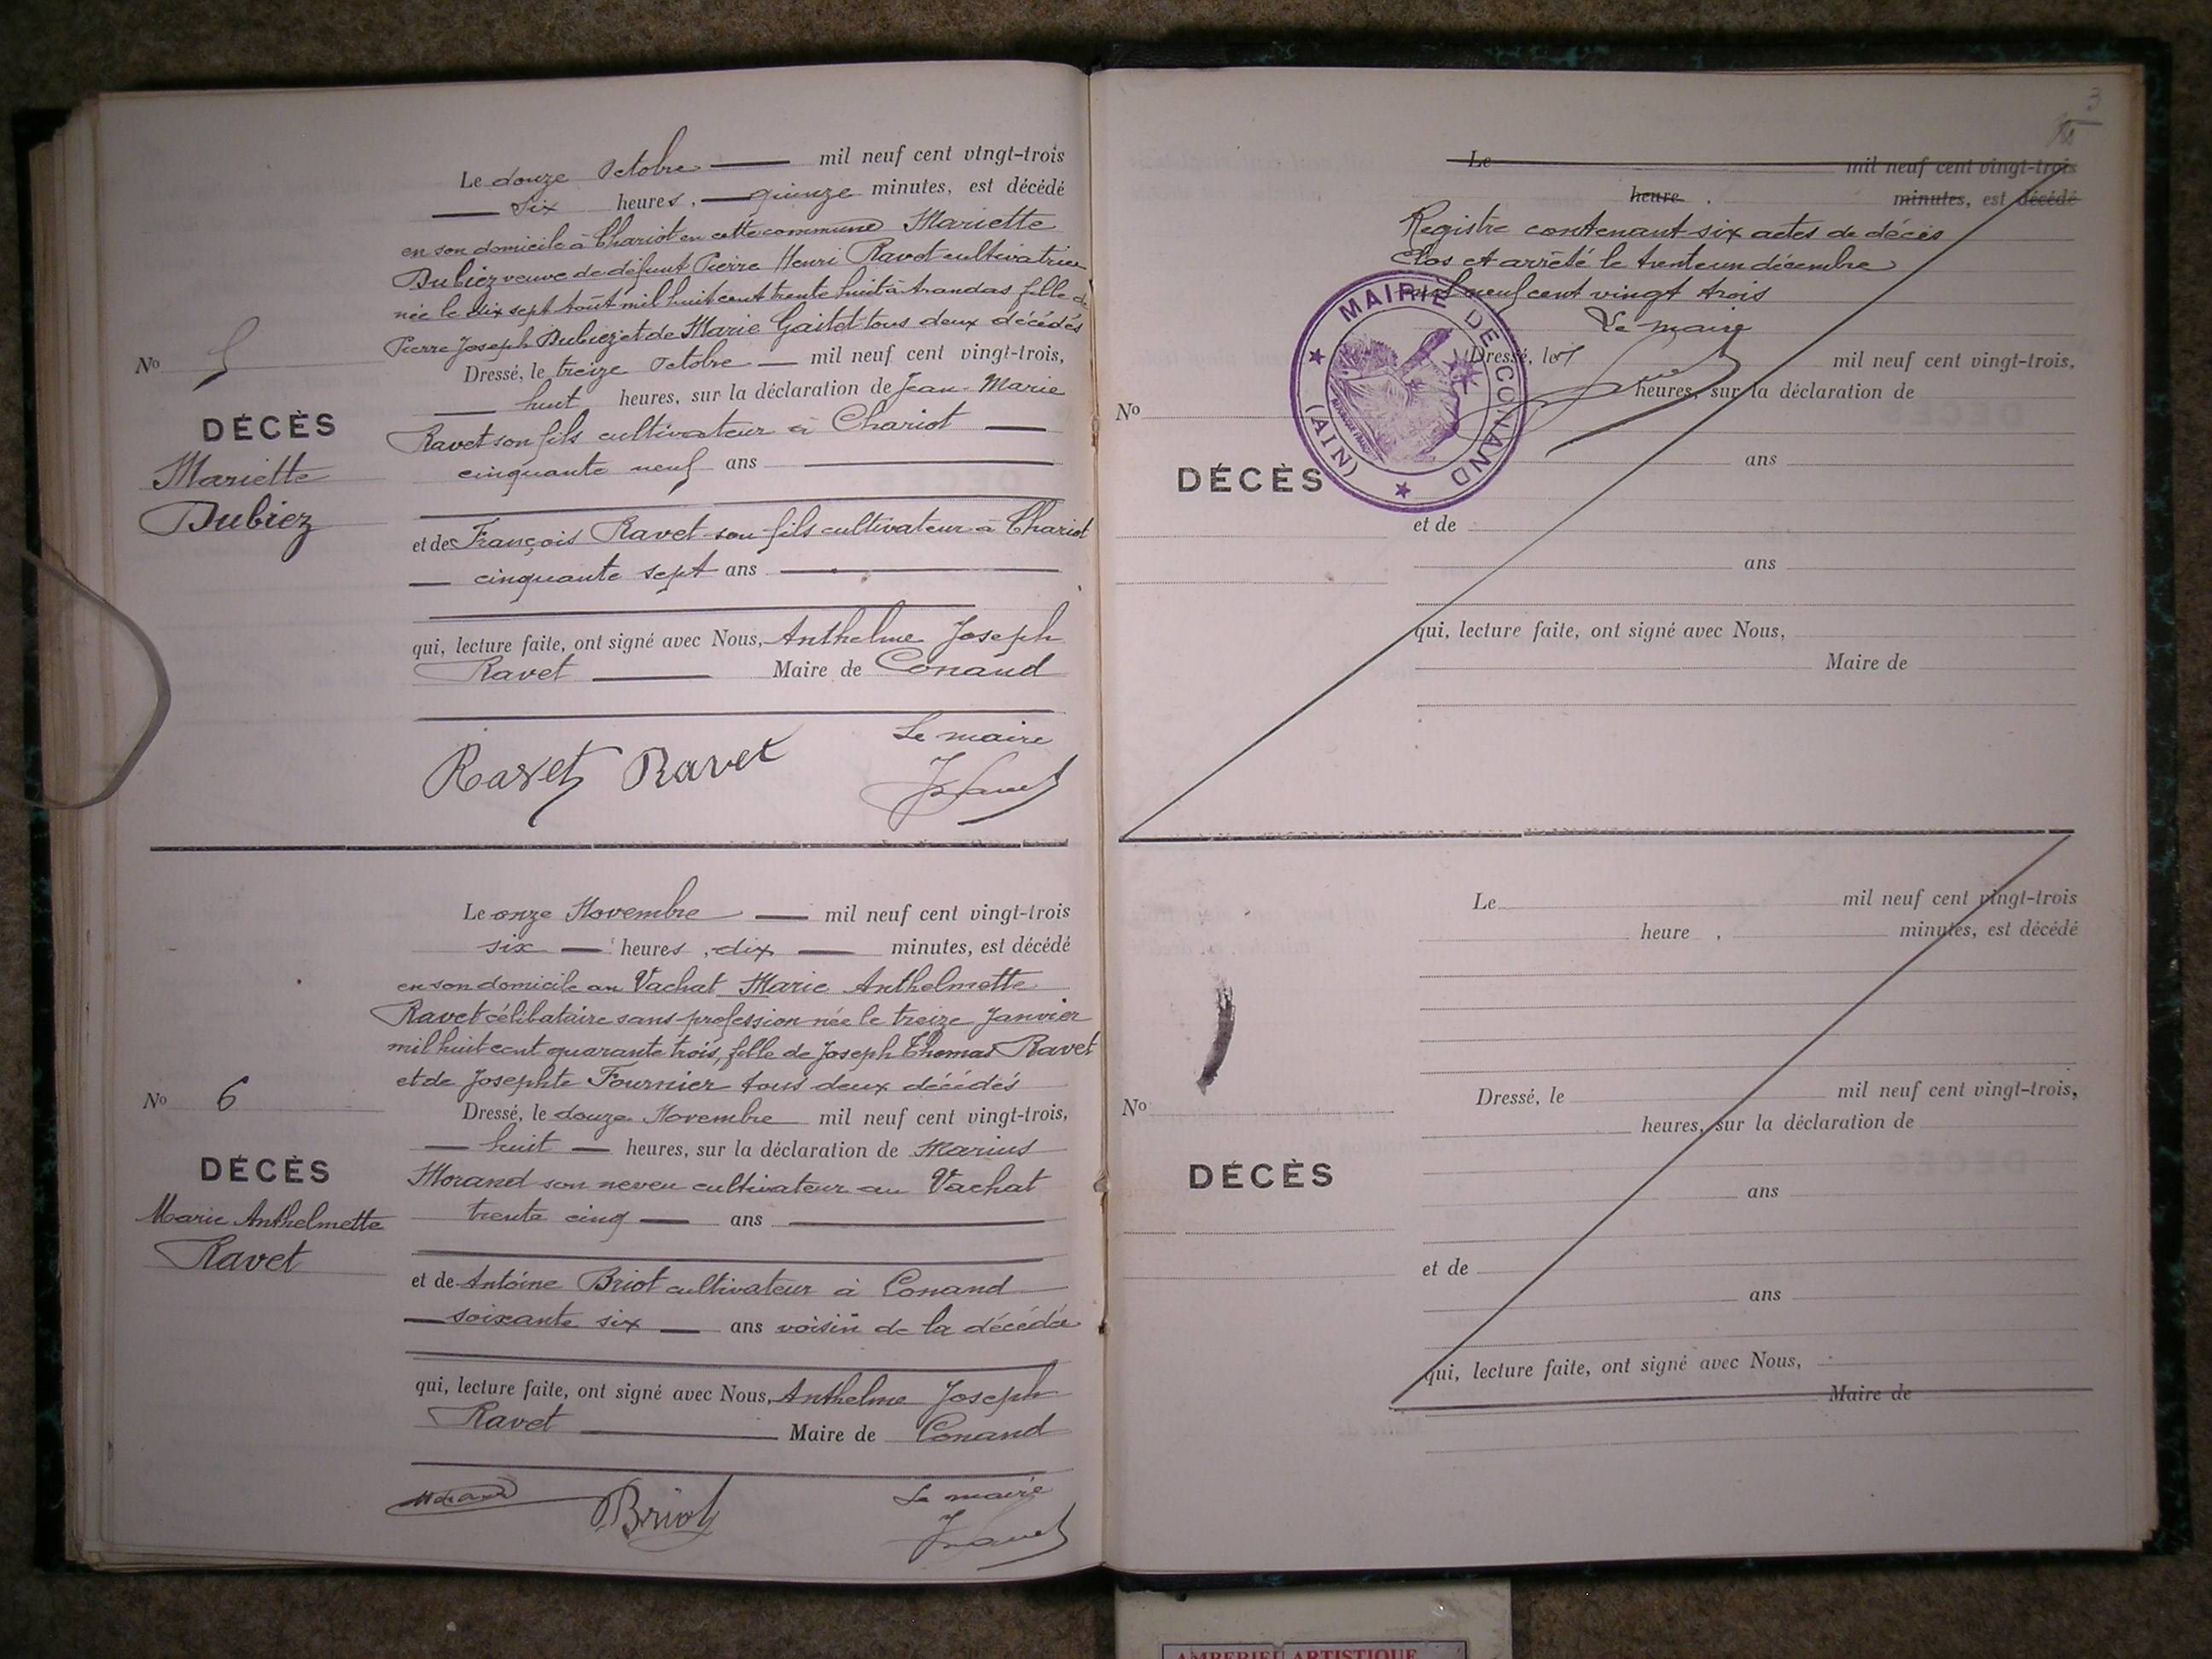 Le douze Octobre mil neuf cent vingt-trois
six heures, quinze minutes, est décédé
en son domicile à Chariot en cette commune Mariette
Dubiez veuve de défunt Pierre Henri Ravet cultivatrice
née le dix sept Août mil huit cent trente huit à Arandas fille de
Pierre Joseph Dubiez et de Marie Gaitet tous deux décédés
Dressé, le treize Octobre mil neuf cent vingt-trois,
huit heures, sur la déclaration de Jean-Marie
Ravet son fils cultivateur à Chariot
cinquante neuf ans
et de François Ravet son fils cultivateur à Chariot
cinquante sept ans
qui, lecture faite, ont signé avec Nous, Anthelme Joseph
Ravet Maire de Conand
Le maire
Ravet Ravet
No 5
DÉCÈS
Mariette
Dubiez
Le onze Novembre mil neuf cent vingt-trois
six heures, dix minutes, est décédé
en son domicile au Vachat Marie Anthelmette
Ravet célibataire sans profession née le treize Janvier
mil huit cent quarante trois, fille de Joseph Thomas Ravet
et de Josephte Fournier tous deux décédés
Dressé, le douze Novembre mil neuf cent vingt-trois,
huit heures, sur la déclaration de Marius
Morand son neveu cultivateur au Vachat
trente cinq ans
et de Antoine Briot cultivateur à Conand
soixante six ans voisin de la décédée
qui, lecture faite, ont signé avec Nous, Anthelme Joseph
Ravet Maire de Conand
Le maire
Morand Briot
No 6
DÉCÈS
Marie Anthelmette
Ravet
3
Le mil neuf cent vingt-trois
heure , minutes, est décédé
Registre contenant six actes de décès
Clos et arrêté le trente un décembre
mil neuf cent vingt trois
Le maire
MAIRIE DE CONAND
(AIN)
Dressé, le mil neuf cent vingt-trois,
heures, sur la déclaration de
No
DÉCÈS
ans
et de
ans
qui, lecture faite, ont signé avec Nous,
Maire de
Le mil neuf cent vingt-trois
heure , minutes, est décédé
Dressé, le mil neuf cent vingt-trois,
heures, sur la déclaration de
No
DÉCÈS
ans
et de
ans
qui, lecture faite, ont signé avec Nous,
Maire de
AMBERIEU ARTISTIQUE